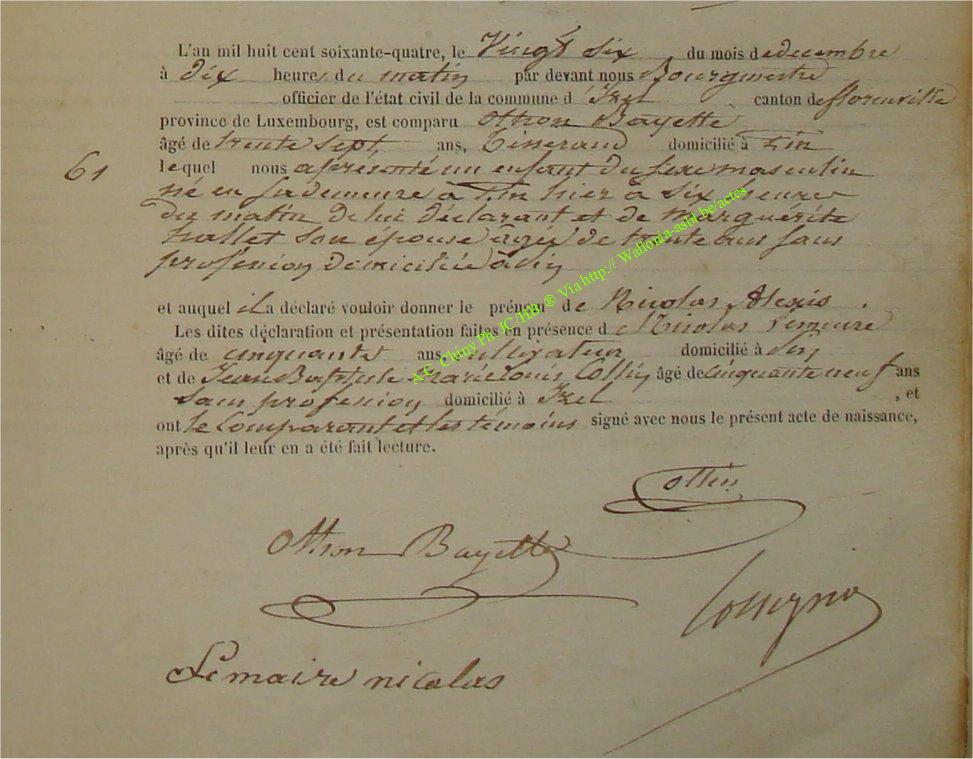 L'an mil huit cent soixante-quatre, le Vingt six du mois de decembre
à Dix heure du matin par devant nous Bourgmestre
officier de l'état civil de la commune d'Izel canton de florenville
province de Luxembourg, est comparu Othon Bayette
âgé de trente sept ans, Tisserand domicilié à Pin
61 lequel nous a présenté un enfant du sexe masculin
né en sa demeure à Pin hier à six heures
du matin de lui declarant et de Marguerite
hallet son épouse âgée de trente ans sans
profession domiciliée à Pin
et auquel il a déclaré vouloir donner le prénom de Nicolas Alexis.
Les dites déclaration et présentation faites en présence de Nicolas Lemaire
âgé de cinquante ans, cultivateur domicilié à Pin
et de Jean Baptiste Marie Louis Collin âgé de cinquante neuf ans
sans profession domicilié à Izel, et
ont le comparant et les témoins signé avec nous le présent acte de naissance,
après qu'il leur en a été fait lecture.
A.C. Chiny Ph JC/HB ® Via http:// Wallonia-asbl.be/actes
Collin
Othon Bayette
Lemaire nicolas